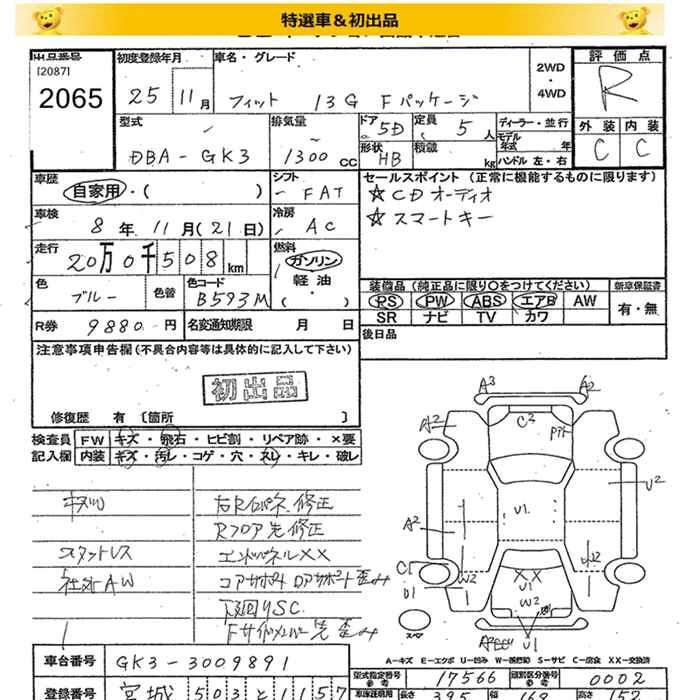 特選車&初出品
出品番号
[2087]
2065
初度登録年月
25 11月
車名・グレード
フィット 13G Fパッケージ
2WD
・
4WD
評価点
R
外装 内装
C C
型式
DBA-GK3
排気量
1300 CC
ドア 5D
形状 HB
定員 5 人
積載 kg
ディーラー・並行
モデル年式 年
ハンドル 左・右
車歴
自家用・( )
シフト
FAT
車検
8 年 11 月(21 日)
冷房
AC
走行
20万0千508 km
燃料
ガソリン
軽油
( ・ )
色
ブルー
色替
色コード
B593M
R券 9880 円
名変通知期限 月 日
セールスポイント(正常に機能するものに限ります)
☆CDオーディオ
☆スマートキー
装備品(純正品に限り○をつけてください)
PS PW ABS エアB AW
SR ナビ TV カワ
新車保証書
有・無
後日品
注意事項申告欄(不具合内容等は具体的に記入して下さい)
初出品
修復歴 有 〔箇所 〕
検査員
記入欄
FW キズ・飛石・ヒビ割・リペア跡・×要
内装 キズ・汚レ・コゲ・穴・スレ・キレ・破レ
スタットレス
社外AW
修正
Rフロア先修正
エンドパネルXX
下回りSC
A3 A2
A2 C2
U2
U1
A2
C1
W2
U1
XX
U1
W2
U1
スペア
A-キズ E-エクボ U-凹み W-補修跡 S-サビ C-腐食 XX-交換済
車台番号 GK3-3009891
型式指定番号 17566
類別区分番号 0002
登録番号 宮城 503 と 1157
長さ 395 幅 169 高さ 152